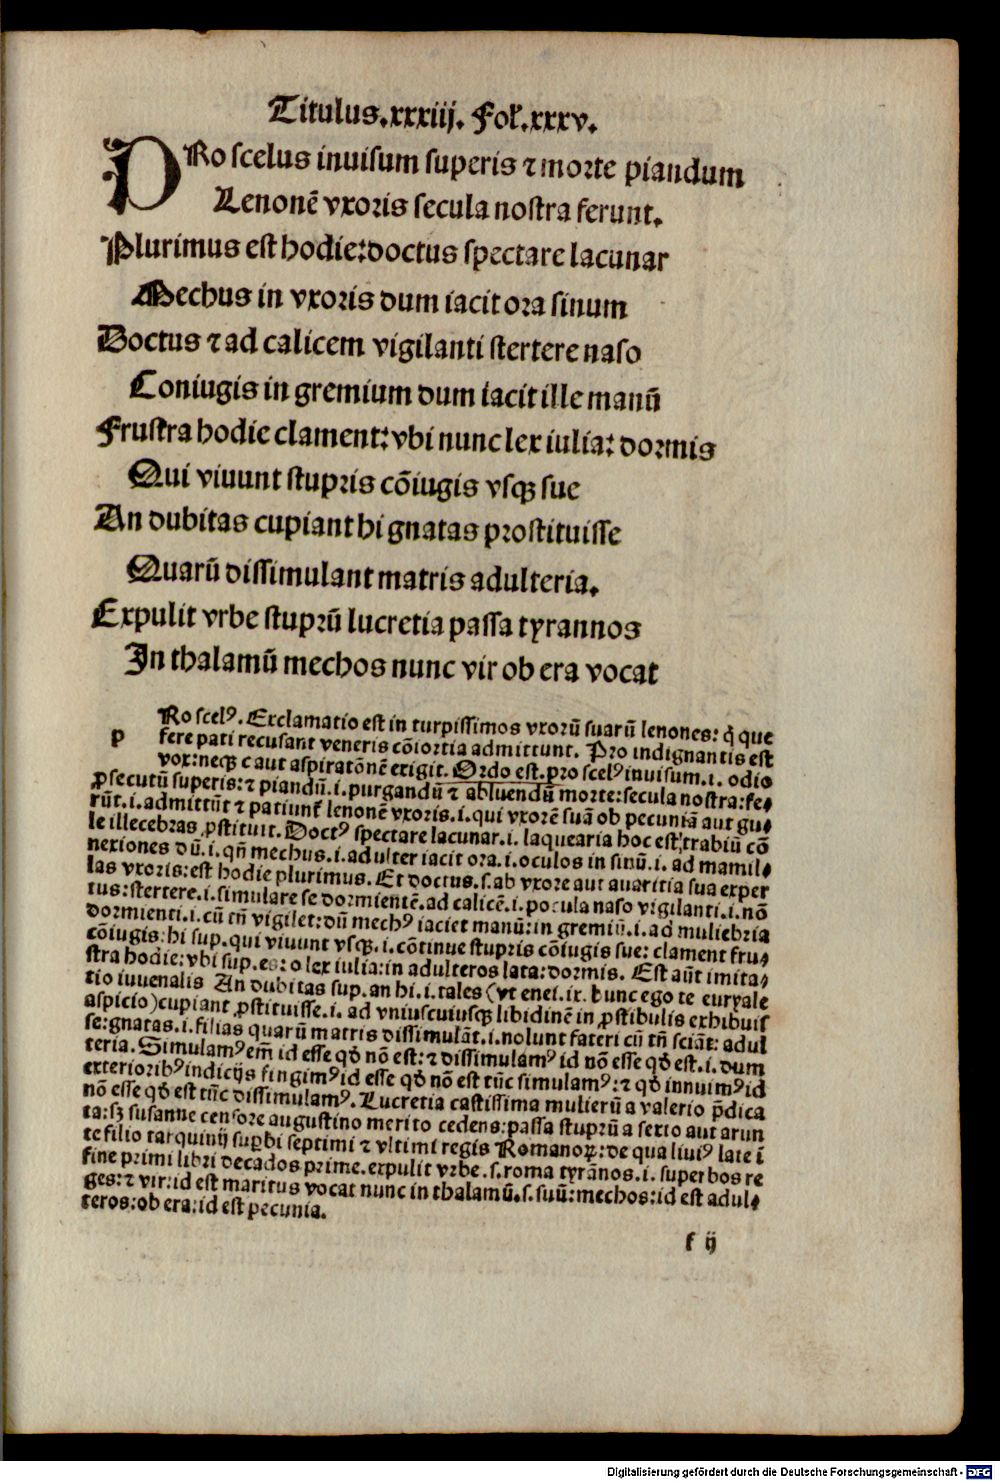 Titulus.xxxiij. Fol̃.xxxv.
PRo scelus inuisum superis ⁊ morte piandum
Lenonẽ vxoris secula nostra ferunt.
Plurimus est hodie:doctus spectare lacunar
Mechus in vxoris dum iacit ora sinum
Doctus ⁊ ad calicem vigilanti stertere naso
Coniugis in gremium dum iacit ille manũ
Frustra hodie clament:vbi nunc lex iulia: dormis
Qui viuunt stupris cõiugis vsqꝫ sue
An dubitas cupiant hi gnatas prostituisse
Quarũ dissimulant matris adulteria.
Expulit vrbe stuprũ lucretia passa tyrannos
In thalamũ mechos nunc vir ob era vocat
p Ro scelꝰ. Exclamatio est in turpissimos vxorũ suarũ lenones: q̃ que
fere pati recusant veneris cõsortia admittunt. Pro indignantis est
vox:neqꝫ c aut aspiratõnẽ exigit. Ordo est.pro scelꝰ inuisum.i. odio
ꝓsecutũ superis:⁊ piandũ.i.purgandũ ⁊ abluendũ morte:secula nostra:fe⸗
rũt.i.admittũt ⁊ patiunt̃ lenonẽ vxoris.i.qui vxorẽ suã ob pecuniã aut gu⸗
le illecebras ꝓstituit. Doctꝰ spectare lacunar.i. laquearia hoc est trabiũ cõ
nexiones dũ.i.qñ mechus.i.adulter iacit ora.i.oculos in sinũ.i. ad mamil⸗
las vxoris:est hodie plurimus. Et doctus.s.ab vxore aut auaritia sua exper
tus:stertere.i.simulare se dormientẽ.ad calicẽ.i.pocula naso vigilanti.i.nõ
dormienti.i.cũ tñ vigilet:dũ mechꝰ iaciet manũ:in gremiũ.i.ad muliebria
cõiugis:hi sup.qui viuunt vsqꝫ.i.cõtinue stupris cõiugis sue: clament fru⸗
stra hodie:vbi sup.es:o lex iulia:in adulteros lata:dormis. Est aũt imita⸗
tio iuuenalis An dubitas sup.an hi.i.tales (vt enei.ix. hunc ego te euryale
aspicio)cupiant ꝓstituisse.i. ad vniuscuiusqꝫ libidinẽ in ꝓstibulis exhibuis
se:gnatas.i.filias quarũ matris dissimulãt.i.nolunt fateri cũ tñ sciãt: adul
teria. Simulamꝰ em̃ id esse qð nõ est:⁊ dissimulamꝰ id nõ esse qð est.i.dum
exterioribꝰ indicijs fingimꝰ id esse qð nõ est tũc simulamꝰ:⁊ qð innuimꝰ id
nõ esse qð est tũc dissimulamꝰ. Lucretia castissima mulierũ a valerio p̃dica
ta:sꝫ susanne censore augustino merito cedens:passa stuprũ a sexto aut arun
te filio tarquinij sup̱bi septimi ⁊ vltimi regis Romanoꝝ:de qua liuiꝰ late ĩ
fine primi libri decados prime.expulit vrbe.s.roma tyrãnos.i. superbos re
ges:⁊ vir:id est maritus vocat nunc in thalamũ.s.suũ:mechos:id est adul⸗
teros:ob era:id est pecunia.
f ij
Digitalisierung gefördert durch die Deutsche Forschungsgemeinschaft - DFG